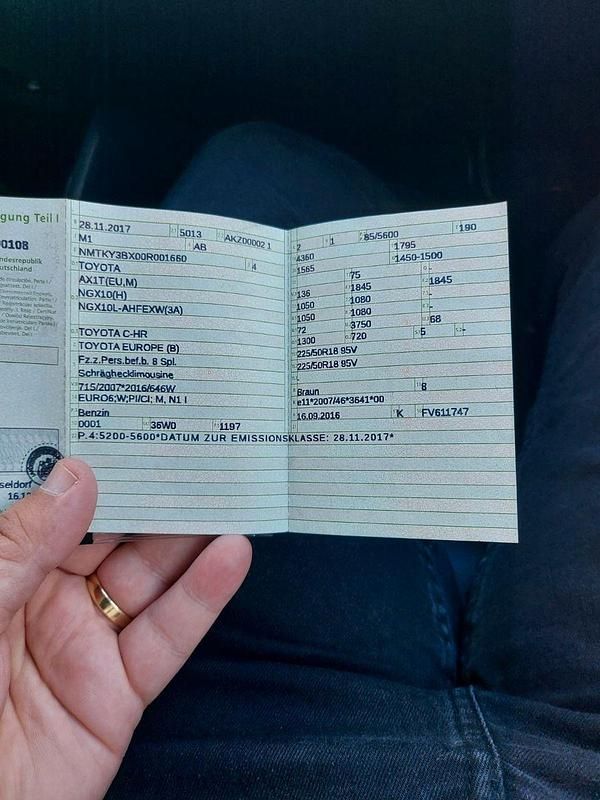 gung Teil I
00108
ndesrepublik
eutschland
28.11.2017 5013 AKZ00002 1
M1 AB
NMTKY3BX00R001660 4
TOYOTA
AX1T(EU,M)
NGX10(H)
NGX10L-AHFEXW(3A)
TOYOTA C-HR
TOYOTA EUROPE (B)
Fz.z.Pers.bef.b. 8 Spl.
Schräghecklimousine
715/2007*2016/646W
EURO6;W;PI/CI; M, N1 I
Benzin
0001 36W0 1197
P.4:5200-5600*DATUM ZUR EMISSIONSKLASSE: 28.11.2017*
2 1 85/5600 190
4360 1795
1565 1450-1500
75 -
136 1845 1845
1050 1080 -
1050 1080
72 3750 68
1300 720 5 -
225/50R18 95V
225/50R18 95V
-
Braun 8
e11*2007/46*3641*00
16.09.2016 K FV611747
seldorf
16.1